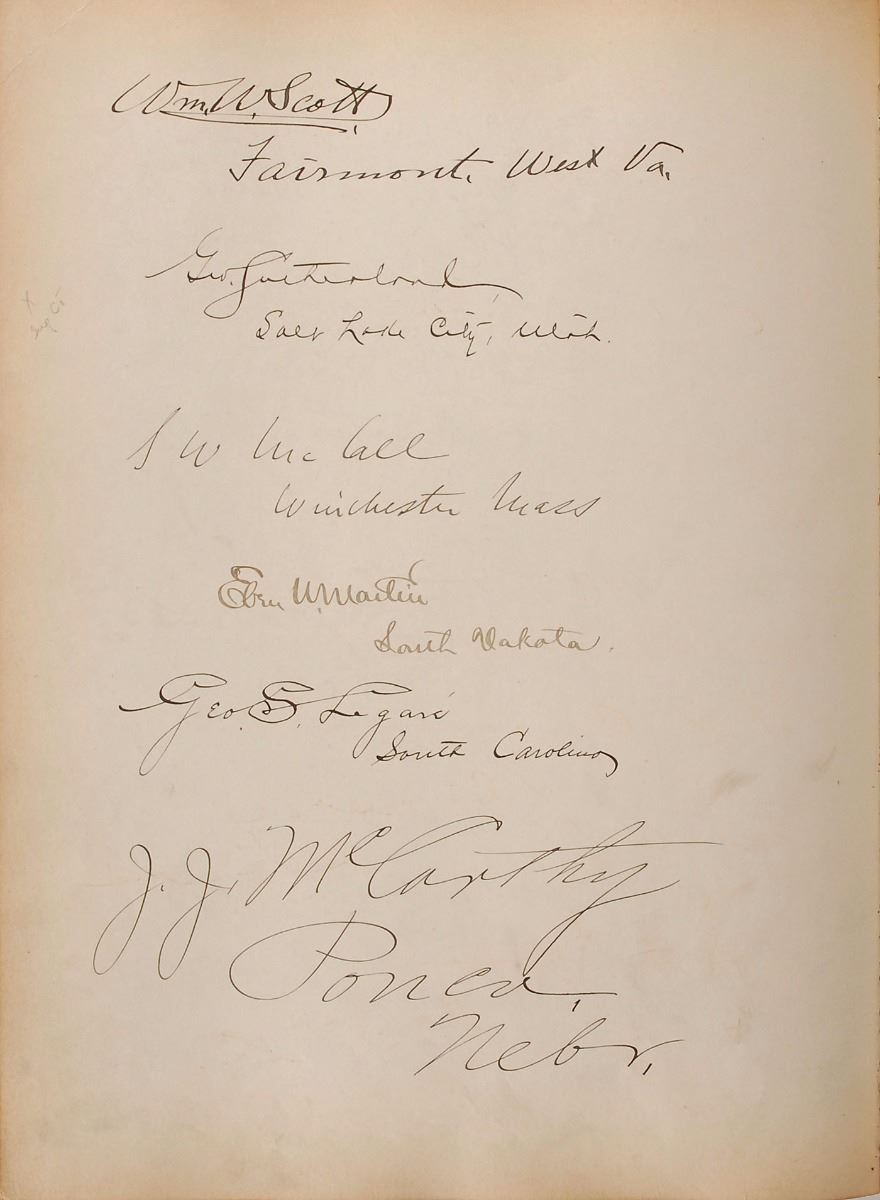 Wm. W. Scott
Fairmont, West Va.
Geo. Sutherland,
Salt Lake City, Utah.
S W McCall
Winchester Mass
Eben W. Martin
South Dakota.
Geo. S. Legaré
South Carolina
J. J. McCarthy
Ponca,
Nebr.